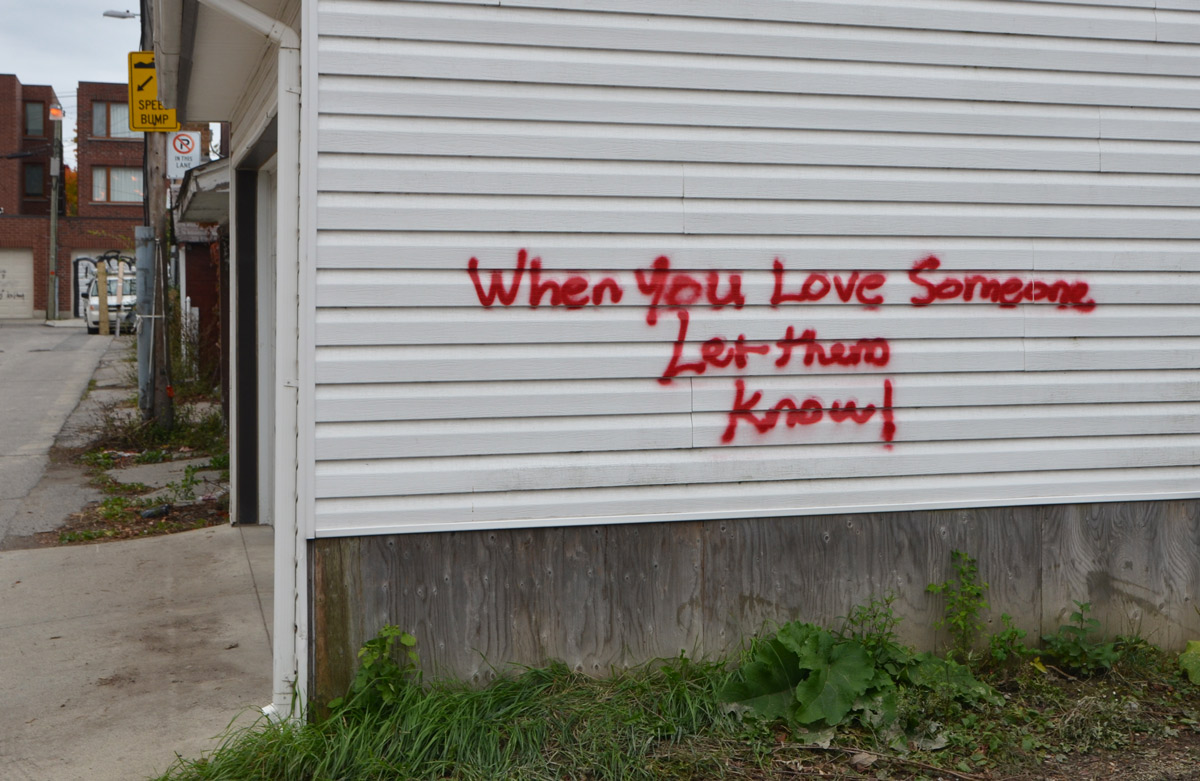 SPEED
BUMP
IN THIS
LANE
When You Love Someone
Let them
know!